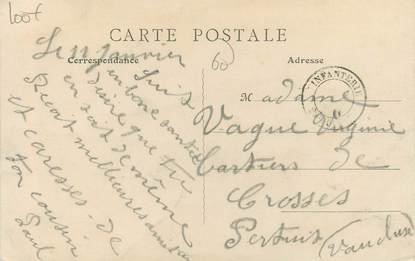 100f
CARTE POSTALE
60
Correspondance
Adresse
Le 11 Janvier
Suis
en bone santé
désire que tu
en soit de même
Reçoit meilleures amitiés
et caresses. de
ton cousin
Paul
INFANTERIE
Madame
Vague Virginie
Cartiers de
Crosses
Pertuis (Vaucluse)